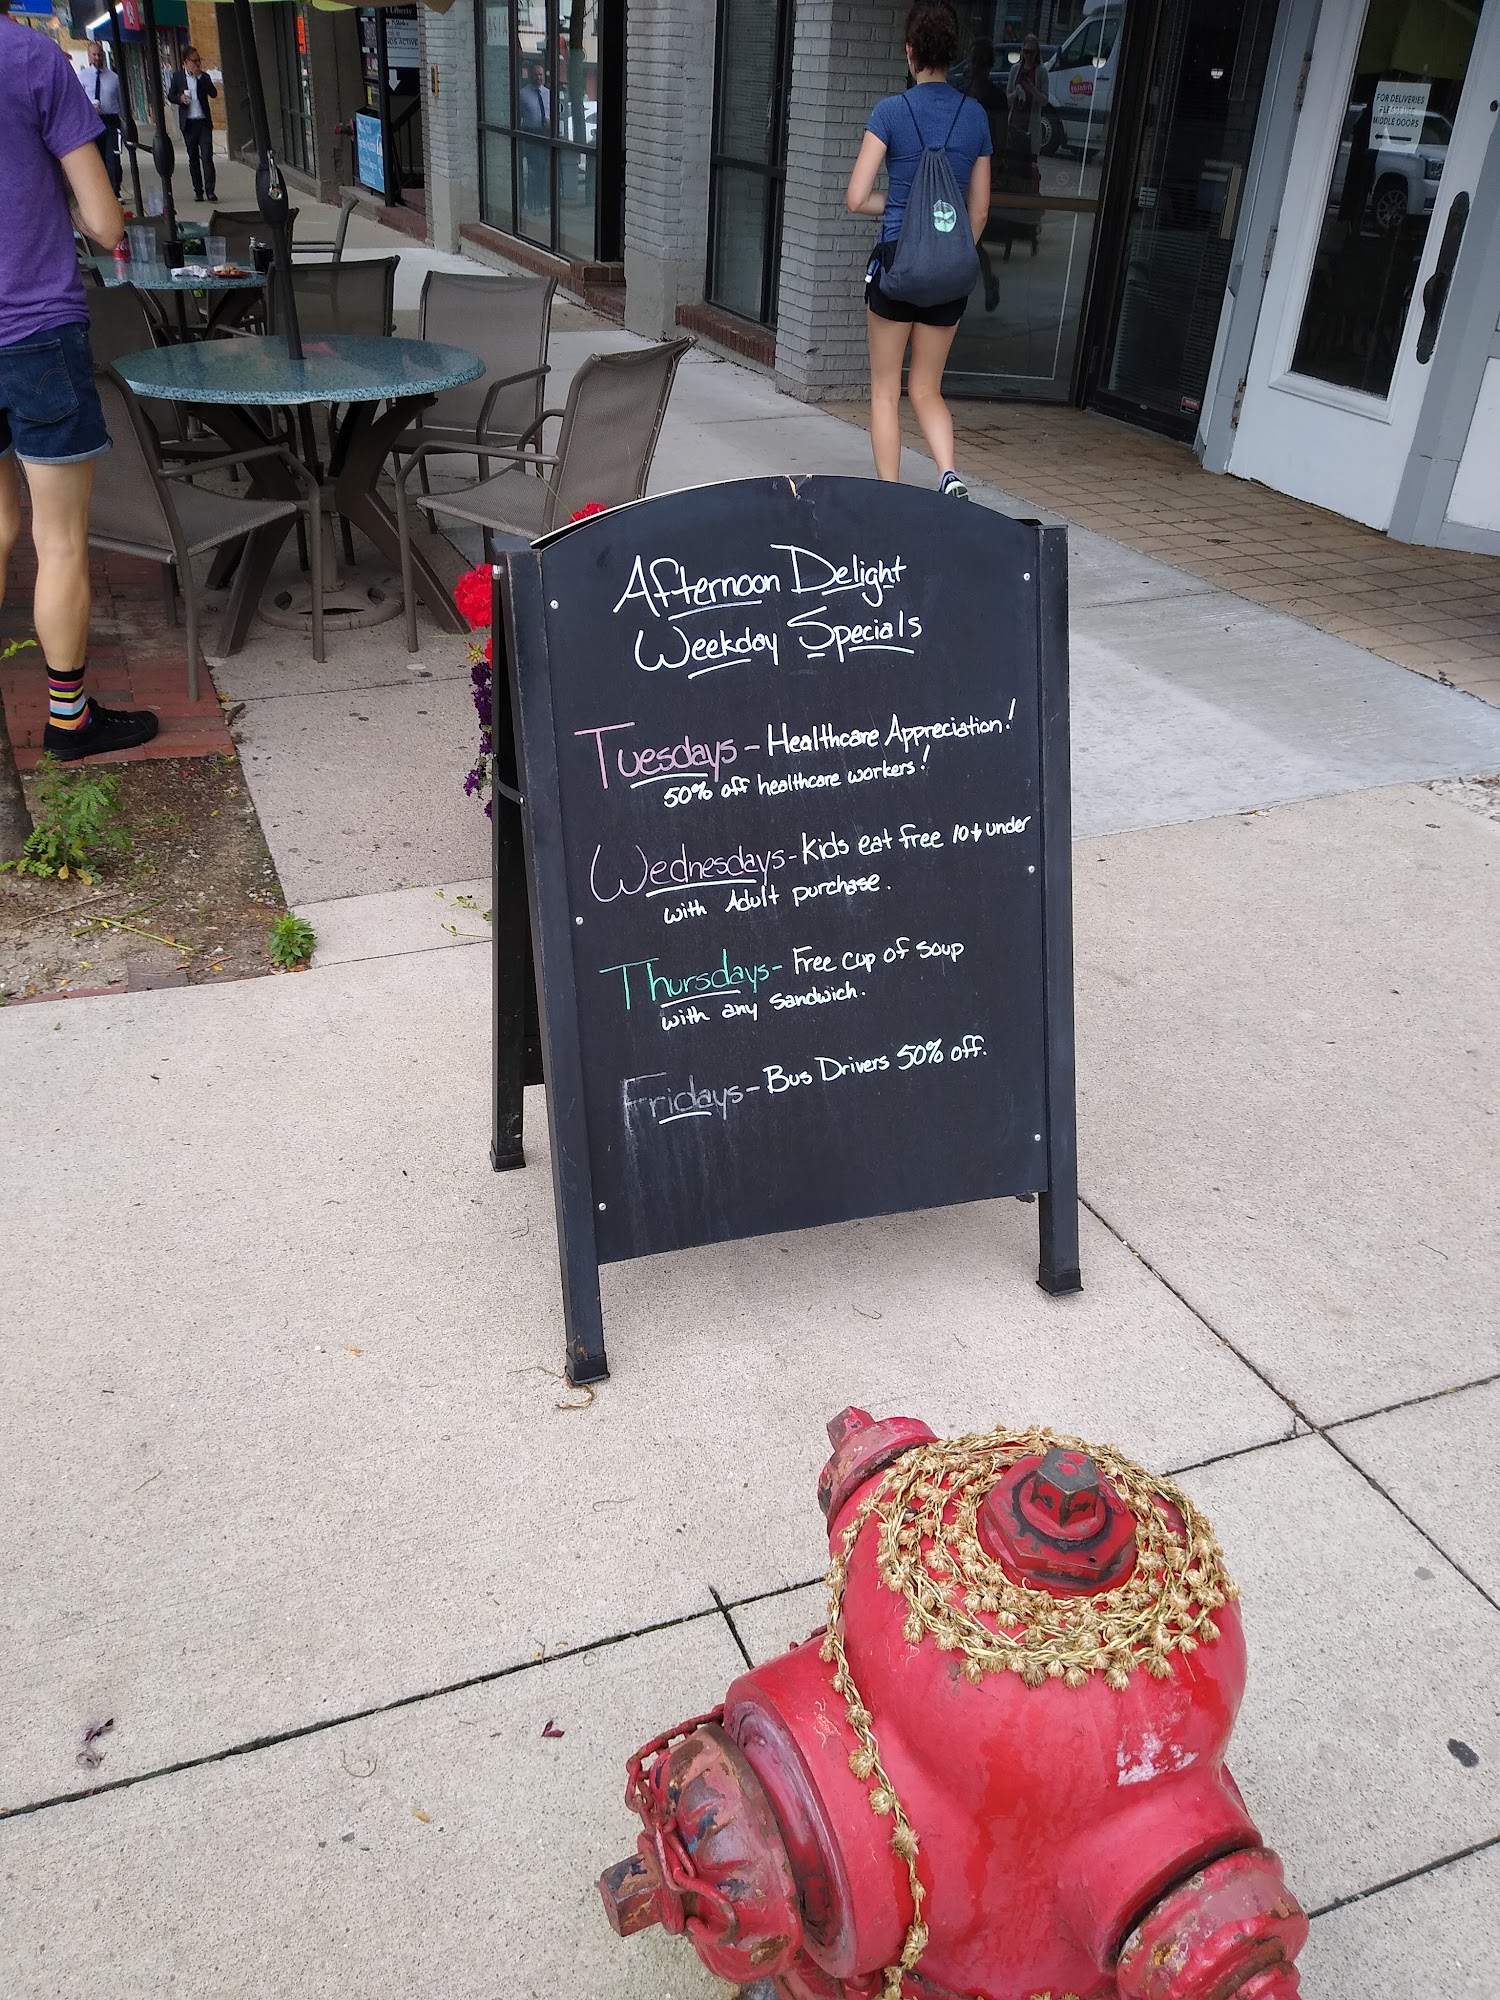 Afternoon Delight
Weekday Specials
Tuesdays - Healthcare Appreciation!
50% off healthcare workers!
Wednesdays - Kids eat free 10 & under
with Adult purchase.
Thursdays - Free cup of soup
with any sandwich.
Fridays - Bus Drivers 50% off.
FOR DELIVERIES
MIDDLE DOORS